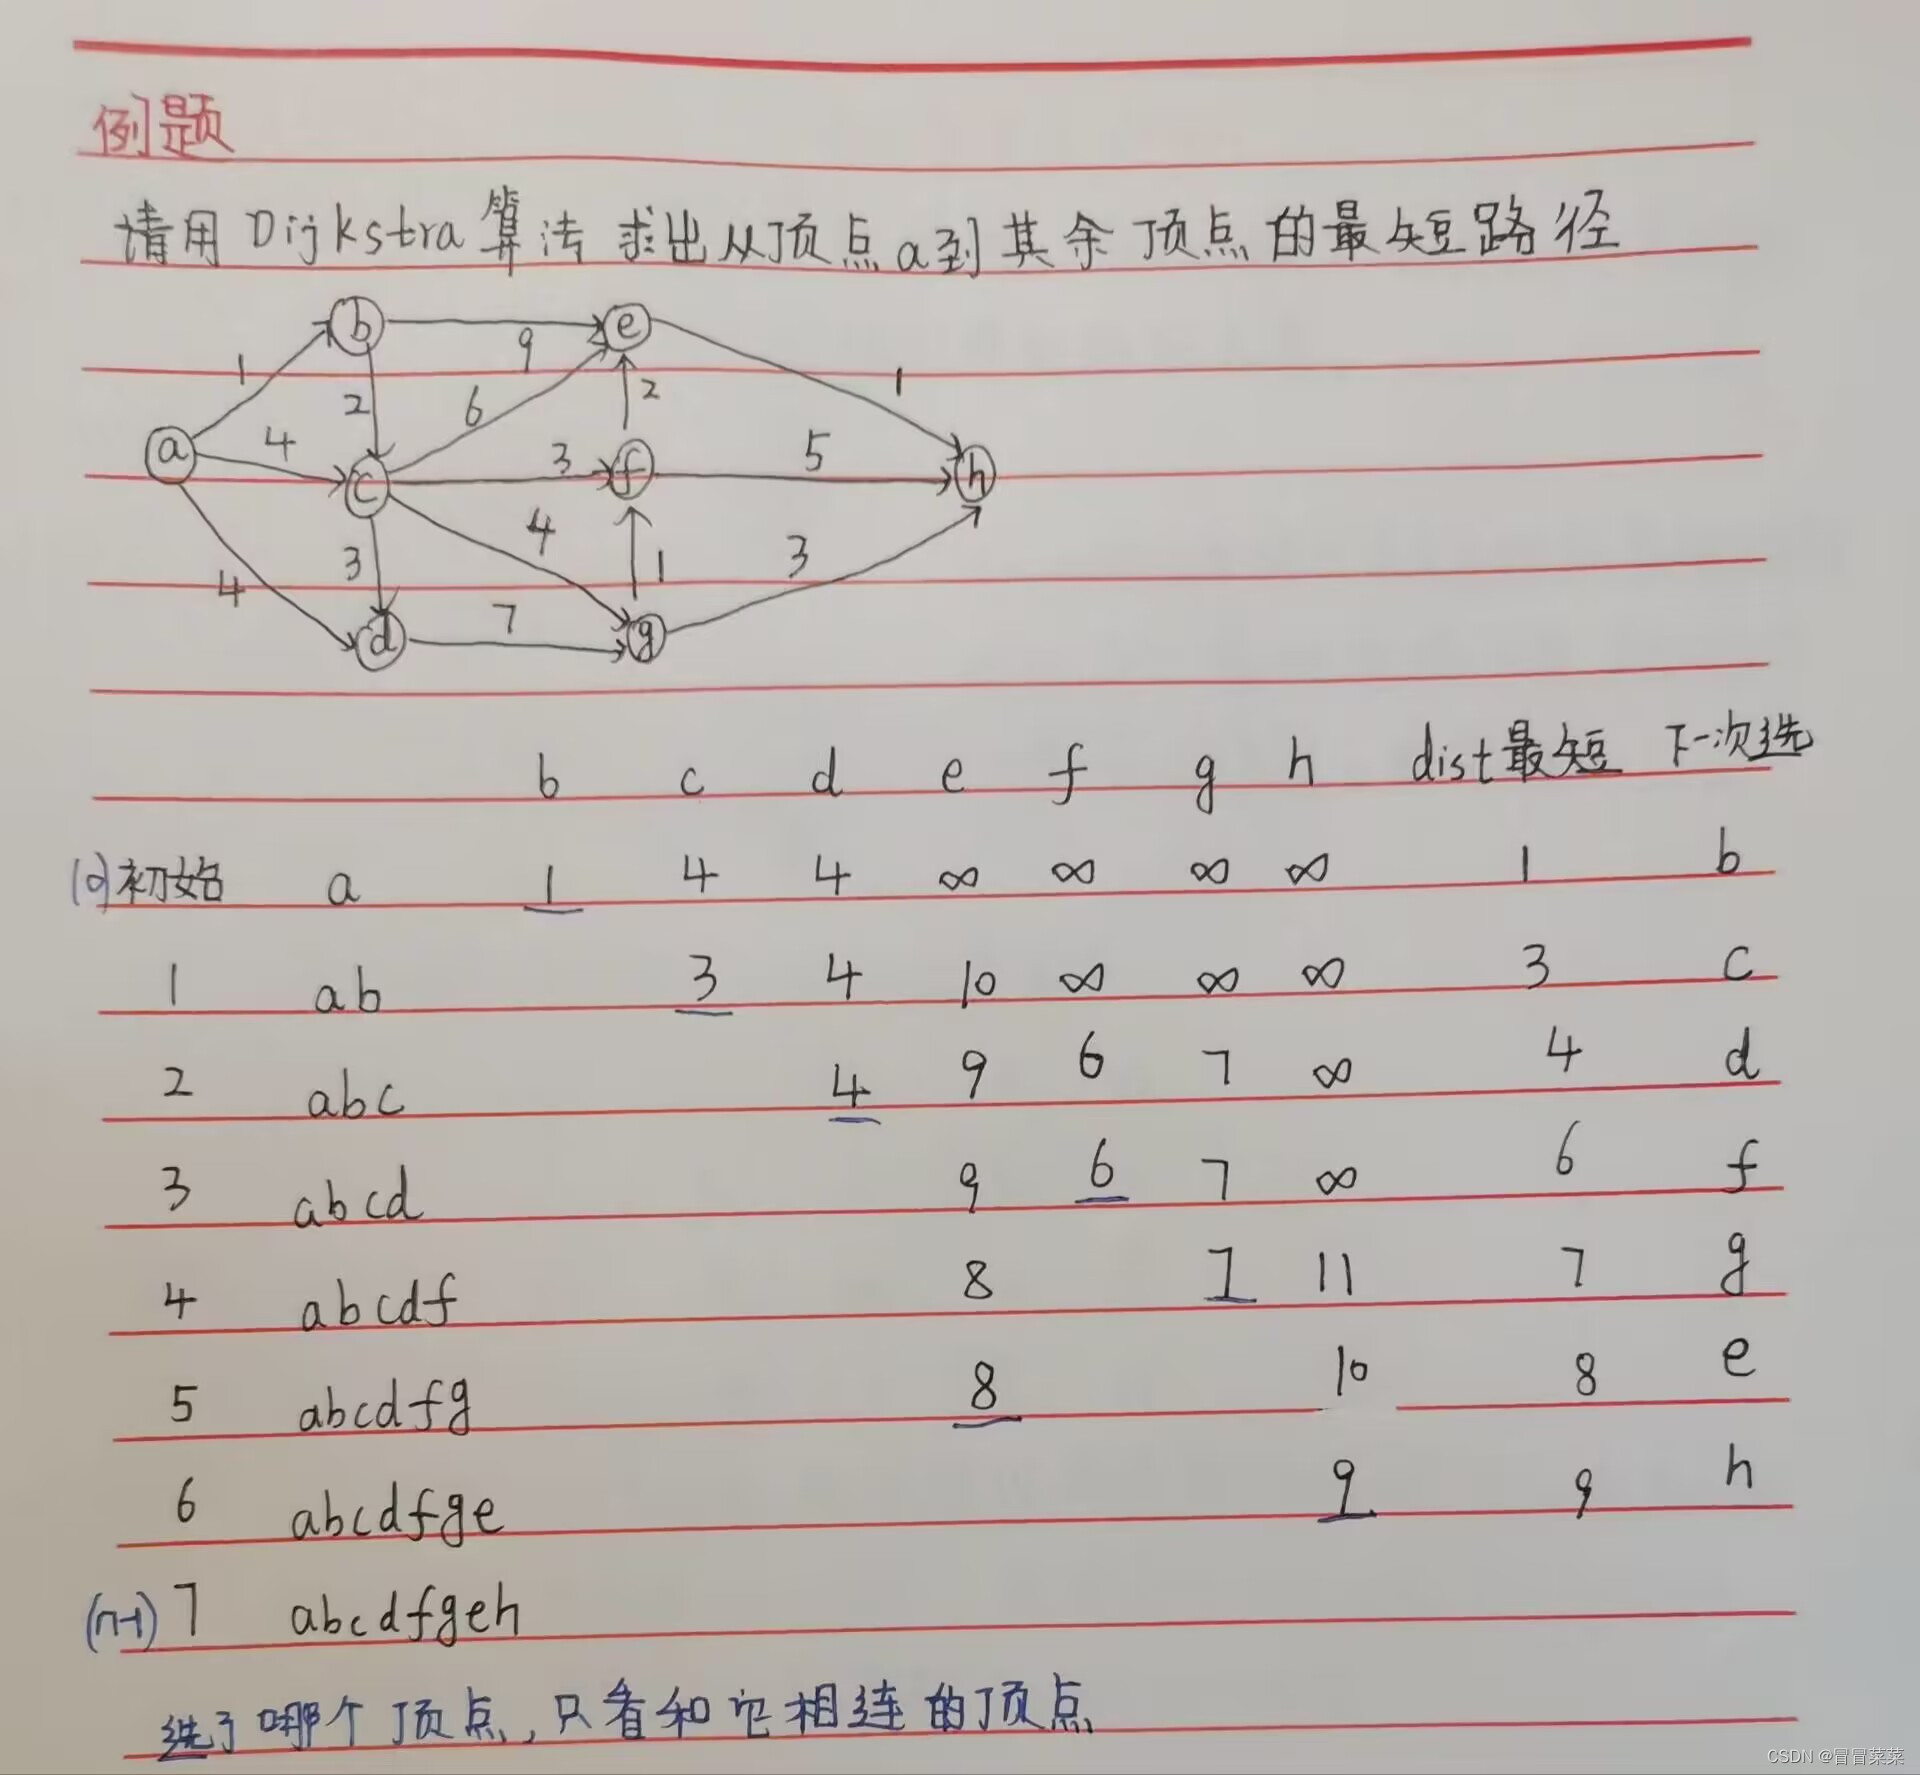 例题
请用Dijkstra算法求出从顶点a到其余顶点的最短路径
b 9 e
1 2 6 2 1
a 4 c 3 f 5 h
4 3 4 1 3
d 7 g
b c d e f g h dist最短 下一次选
(0)初始 a 1 4 4 ∞ ∞ ∞ ∞ 1 b
1 ab 3 4 10 ∞ ∞ ∞ 3 c
2 abc 4 9 6 7 ∞ 4 d
3 abcd 9 6 7 ∞ 6 f
4 abcdf 8 7 11 7 g
5 abcdfg 8 10 8 e
6 abcdfge 9 9 h
(n-1) 7 abcdfgeh
选了哪个顶点,只看和它相连的顶点
CSDN @冒冒菜菜